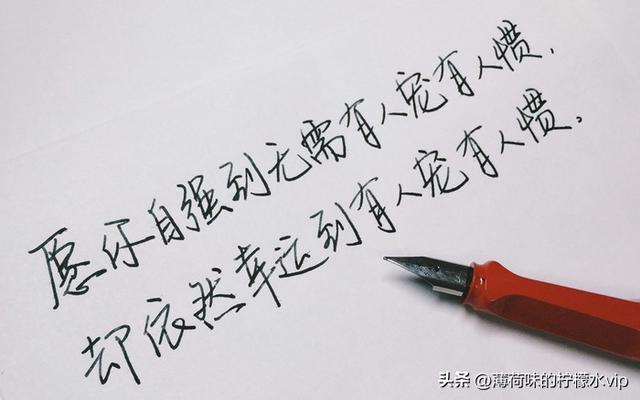 愿你自强到无需有人宠有人惯，
却依然幸运到有人宠有人惯。
头条 @薄荷味的柠檬水.vip